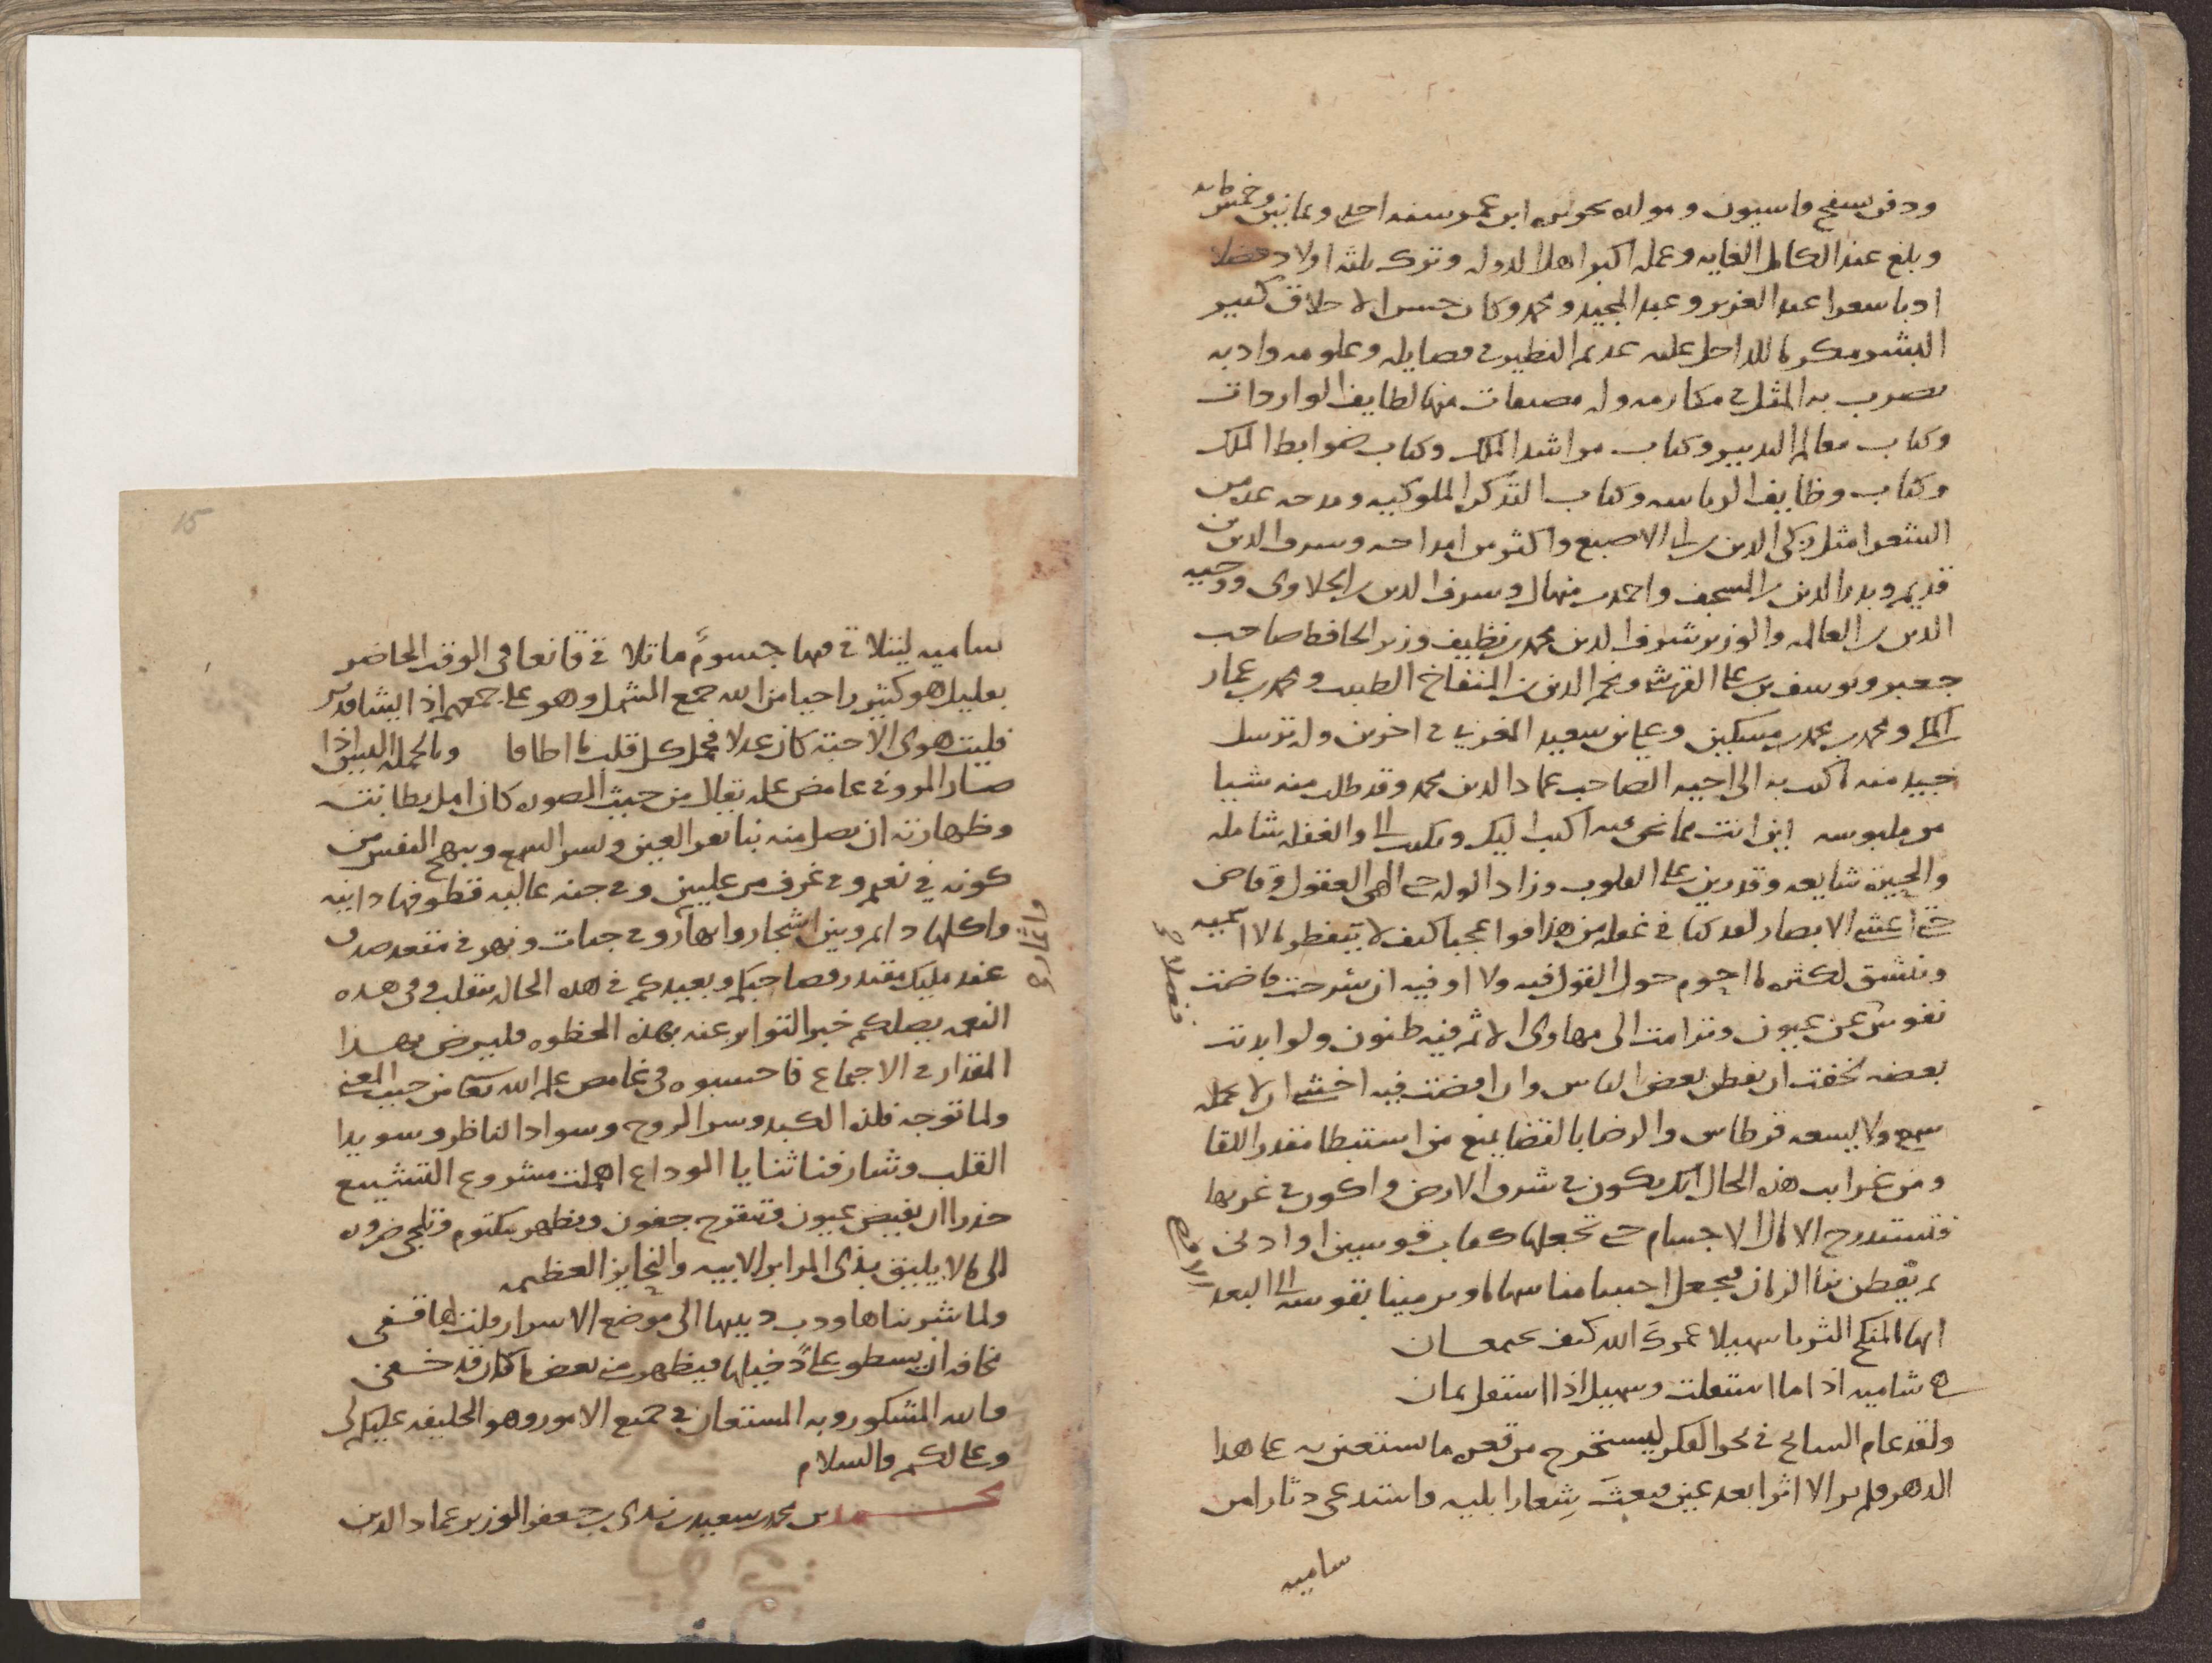 ودفن بسفح قاسيون ومولده بجزيره ابن عمر سنه احدى وثمانين وخمس مايه
وبلغ عند الكامل الغايه وعمله اكبر اهل الدوله وترك ثلثه اولاد فضلا
ادبا شعرا عبد العزيز وعبد المجيد ومحمد وكان حسن الاخلاق كثير
البشر مكرما للداخل عليه عديم النظير في فضايله وعلومه وادبه
يضرب به المثل في مكارمه وله مصنفات منها لطايف الواردات
وكتاب معالم التدبير وكتاب مراشد الملك وكتاب ضوابط الملك
وكتاب وظايف الرياسه وكتاب التذكرا الملوكيه ومدحه عده من
الشعرا مثل زكى الدين بن ابى الاصبع واكثر من امداحه وشرف الدين بن
قديم وبدر الدين بن المسجف واحمد بن منهال وشرف الدين بن الحلاوى ووجيه
الدين بن العالمه والوزير شرف الدين محمد بن نظيف وزير الحافظ صاحب
جعبر ويوسف بن على القرشى ونجم الدين بن المنفاخ الطبيب ومحمد بن عمار
المكى ومحمد بن محمد بن مسكين وعلى بن سعيد المغربى في اخرين وله ترسل
جيد منه ما كتب به الى اخيه الصاحب عماد الدين محمد وقد طلب منه شيا
من ملبوسه اين انت مما نحن فيه اكتب اليك وتكتب الى والغفله شامله
والمحبة شايعه وقد رين على القلوب وزاد الوله حتى الهى العقول وفاض
حتى اعشى الابصار لقد كنا في غفله من هذا فوا عجبا كيف لا يتفطر مالا اسميه
وينشق لكثره ما احوم حول القول فيه ولا اوفيه ان شرحت فاضت
نفوس عن عيون وترامت الى مهاوى الاثم فيه ظنون ولو ابديت
بعضه لخفت ان يفطن بعض الناس وان افضت فيه اخشى ان لا يحمله
سمع ولا يسعه قرطاس والرضا بالقضا يمنع من استبطا مقدر اللقا
ومن غرايب هذه الحال انك تكون في شرق الارض واكون في غربها
فتستدرج الامال الاجسام حتى تجعلها كقاب قوسين او ادنى
ثم يفطن بنا الزمان فيجعل اجسامنا سهاما ويرمينا بقوسه الى البعد
ايها المنكح الثريا سهيلا عمرك الله كيف يجتمعان
هى شاميه اذا ما استقلت وسهيل اذا استقل يمان
ولقد عام السابح في بحر الفكر ليستخرج من قعره ما يستعين به على هذا
الدهر فلم ير الا اثرا بعد عين فبعث شعارا يليه واستدعى دثارا من
ساميه
ساميه ليتلاقى فيها جسوم ما تلاقى قانعا في الوقت الحاضر
بقليل هو كثير راجيا من الله جمع الشمل وهو على جمعهم اذا يشا قدير
فليت هوى الاحبة كان عدلا فحمل كل قلب ما اطاقا وبالجمله البين اذا
صار المرو في غامض علم تعالى من حيث الصوره كان امل بطانته
وظهارته ان يصل منه نبا يقر العين ويسر السمع ويبهج النفس من
كونه في نعيم وفي غرف من عليين وفي جنه عاليه قطوفها دانيه
واكلها دايم وبين اشجار وانهار وفي جنات ونهر في مقعد صدق
عند مليك مقتدر فصاحبكم وبعيدكم في هذه الحاله يتقلب وفى هذه
النعمه يصلكم خبر التواتر عنه بهذه الحظوه فليرض بهذا
المقدار في الاجتماع فاحسبوه في غامض علم الله تعالى من حيث المعنى
ولما توجه فلذه الكبد وسر الروح وسواد الناظر وسويدا
القلب وشارفنا ثنايا الوداع اهملت مشروع التشييع
حذرا ان تفيض عيون وتتقرح جفون ويظهر مكتوم وتلجى ضروره
الى مالا يليق بذوى المراير الابيه والنحايز العظيمه
ولما شربناها ودب دبيبها الى موضع الاسرار قلت لها قفى
مخافه ان يسطو على دخيلها فيظهر من بعض ما كان قد خفى
فالله المشكور وبه المستعان في جميع الامور وهو الخليفه عليكم لى
وعلى لكم والسلام
محمد بن محمد بن سعيد بن ندى بن جعفر الوزير عماد الدين
15